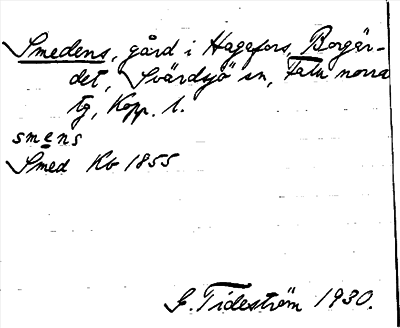 Smedens, gård i Hagafors, Borgär-
det, Svärdsjö sn, Falu norra
tg, Kopp. l.
smens
Smed Kb 1855
G. Tideström 1930.